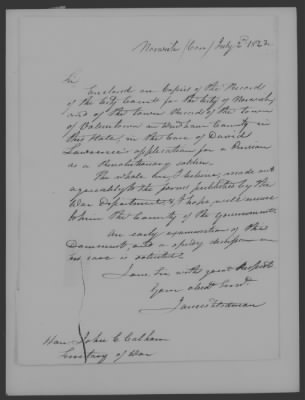 Norwich (Con) July 2d 1822
Sir
Enclosed are Copies of the Records
of the City Court for the City of Norwich,
and of the town Records of the town
of Voluntown in Windham County in
this State, in the Case of David
Lawrence's application for a Pension
as a Revolutionary soldier.
The whole being, I believe, made out
agreeably to the forms published by the
War Department, & I hope will ensure
to him the bounty of the Government.
An early examination of these
Documents, and a speedy decision on
his case is solicited.
I am Sir with great Respect
Your obedt Servt
James Stedman
Hon John C Calhoun
Secretary of War